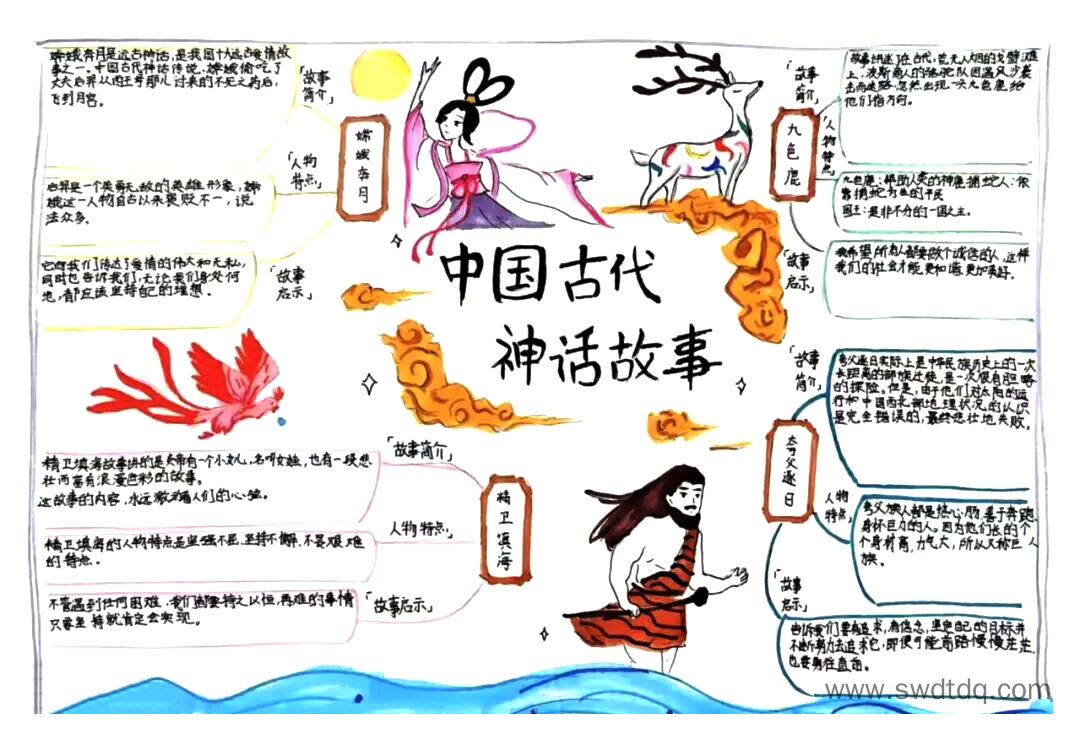 中国古代
神话故事
嫦娥奔月
「故事
简介」
嫦娥奔月是远古神话，是我国十大远古爱情故
事之一。中国古代神话传说，嫦娥偷吃了
丈夫后羿从西王母那儿讨来的不死之药后，
飞到月宫。
「人物
特点」
后羿是一个英勇无敌的英雄形象，嫦
娥这一人物自古以来褒贬不一，说
法众多。
「故事
启示」
它向我们传达了爱情的伟大和无私，
同时也告诉我们，无论我们身处何
地，都应该坚持自己的理想。
九色鹿
「故事
简介」
故事讲述了在古代，荒无人烟的戈壁滩
上，波斯商人的骆驼队因风沙袭
击而迷路，忽然出现一头九色鹿给
他们指方向。
「人物
特点」
九色鹿：帮助人类的神鹿 捕蛇人：依
靠捕蛇为生的平民
国王：是非不分的一国之主。
「故事
启示」
我希望所有人都要做个诚信的人，这样
我们的社会才能更和谐更加美好。
精卫填海
「故事简介」
精卫填海故事讲的是炎帝有一个小女儿，名叫女娃，也有一段悲
壮而富有浪漫色彩的故事。
这故事的内容，永远激动着人们的心弦。
人物特点」
精卫填海的人物特点是坚强不屈、坚持不懈、不畏艰难
的特点。
「故事启示」
不管遇到任何困难，我们都要持之以恒，再难的事情
只要坚持就肯定会实现。
夸父逐日
「故事
简介」
夸父逐日实际上是中华民族历史上的一次
长距离的部族迁徙，是一次很有胆略
的探险。但是，由于他们对太阳的运
行和中国西北部地理状况的认识
是完全错误的，最终悲壮地失败。
人物
特点」
夸父族人都是热心肠，善于奔跑，
身怀巨力的人。因为他们长的个
个身材高，力气大，所以又称巨人
族。
「故事
启示」
告诉我们要有追求，有信念，坚定自己的目标并
不断努力去追求它，即便可能前路慢慢茫茫，
也要勇往直前。
www.swdtdq.com